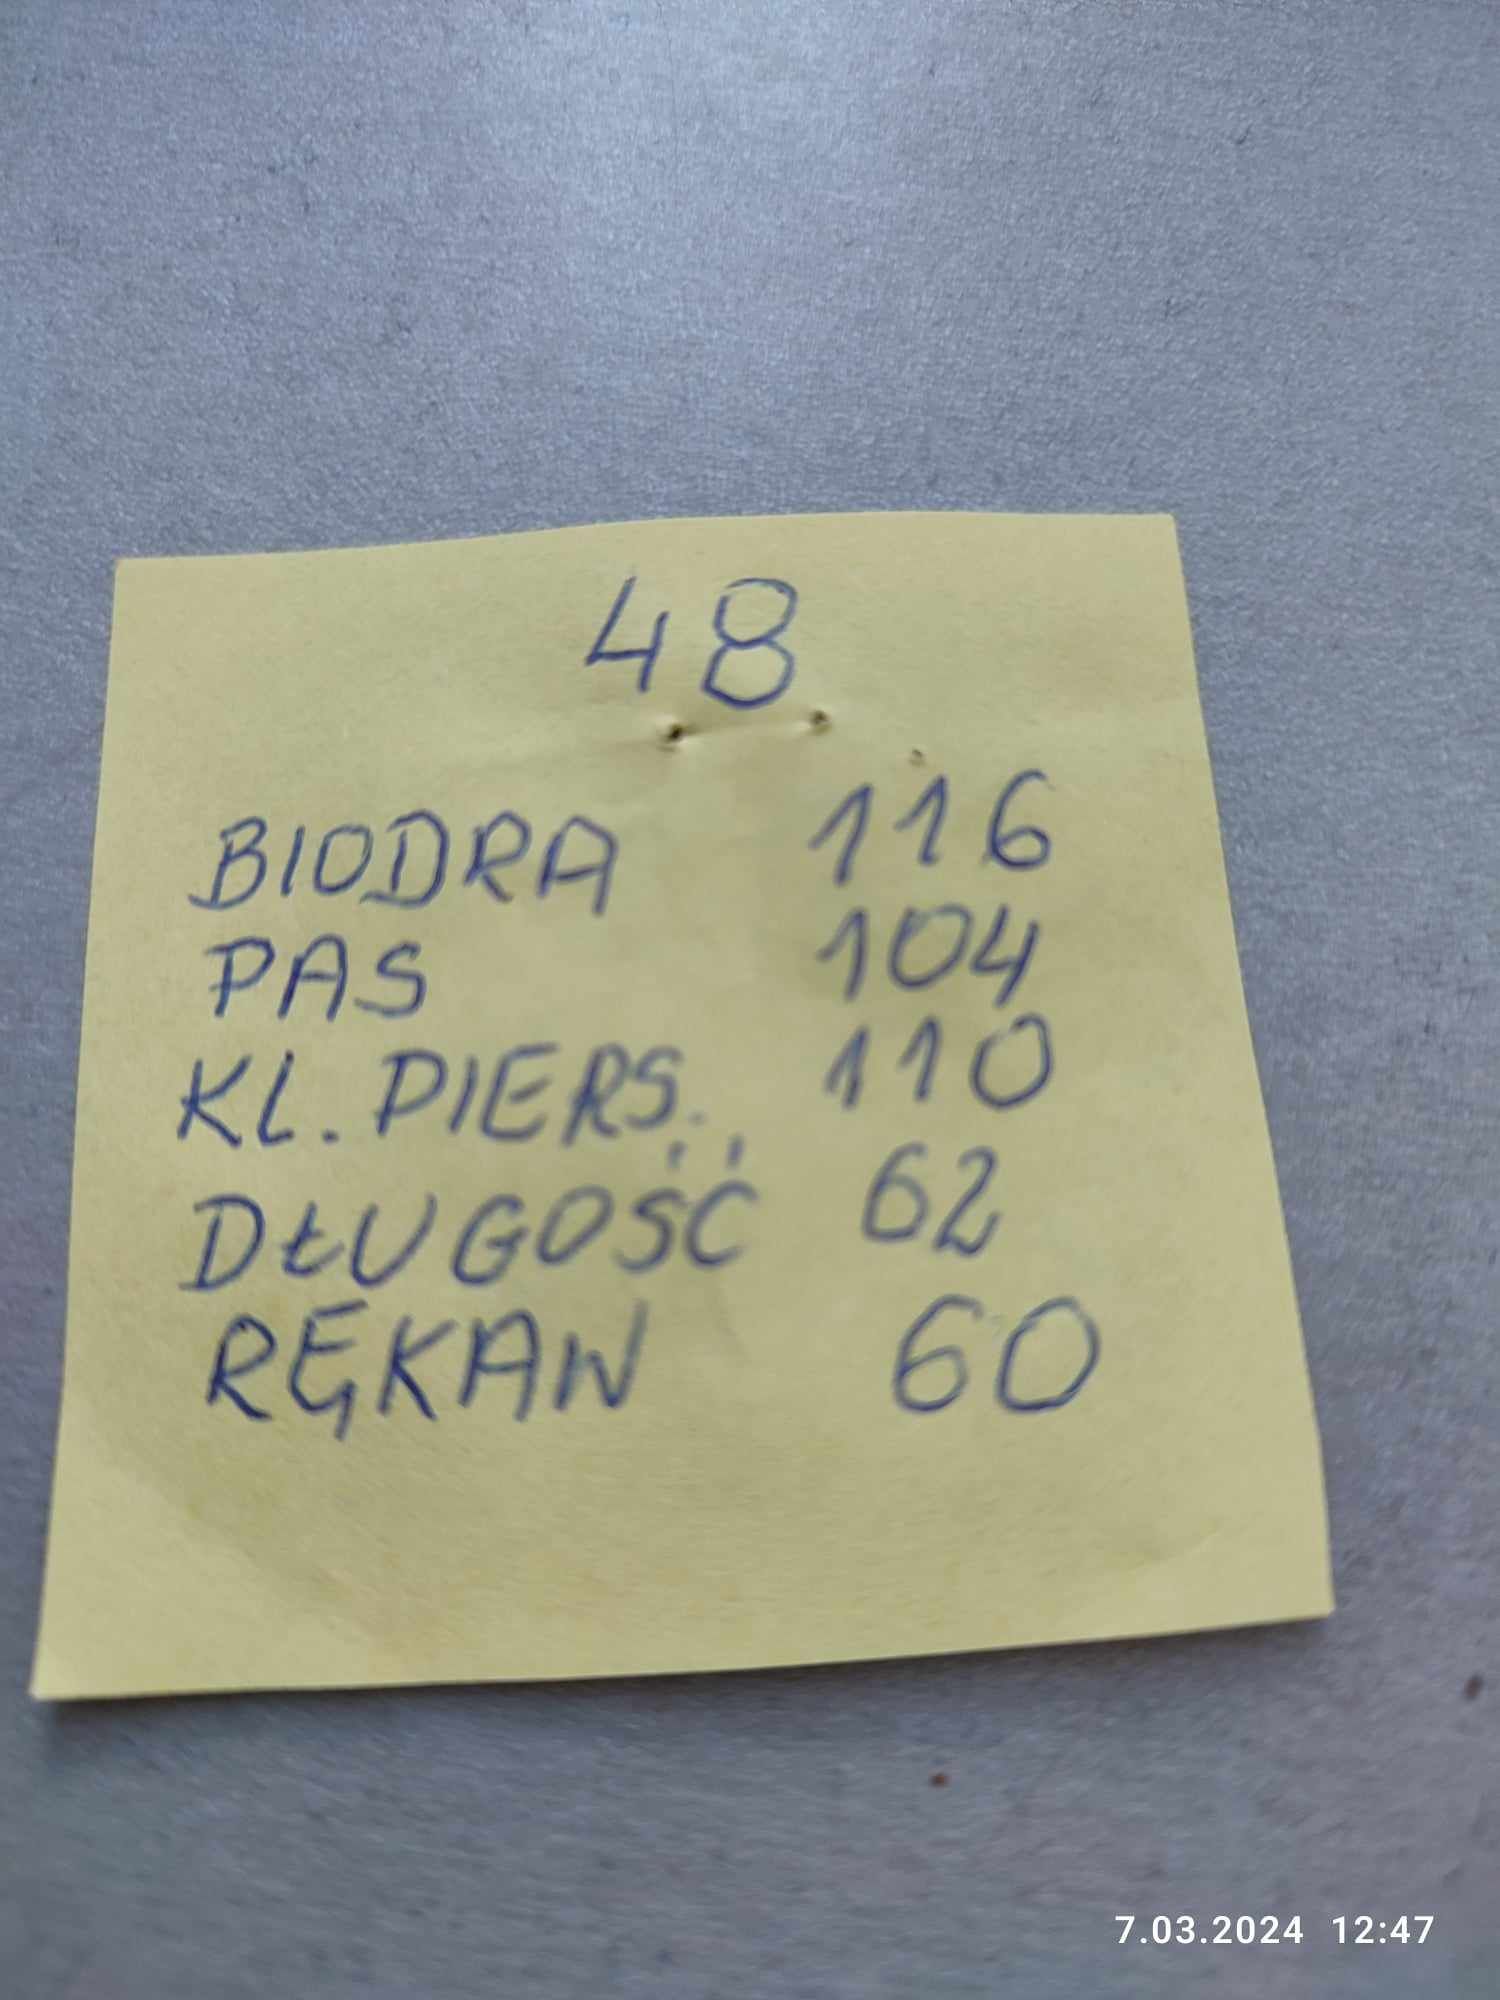 48
BIODRA 116
PAS 104
KL. PIERS. 110
DŁUGOŚĆ 62
RĘKAW 60
7.03.2024 12:47